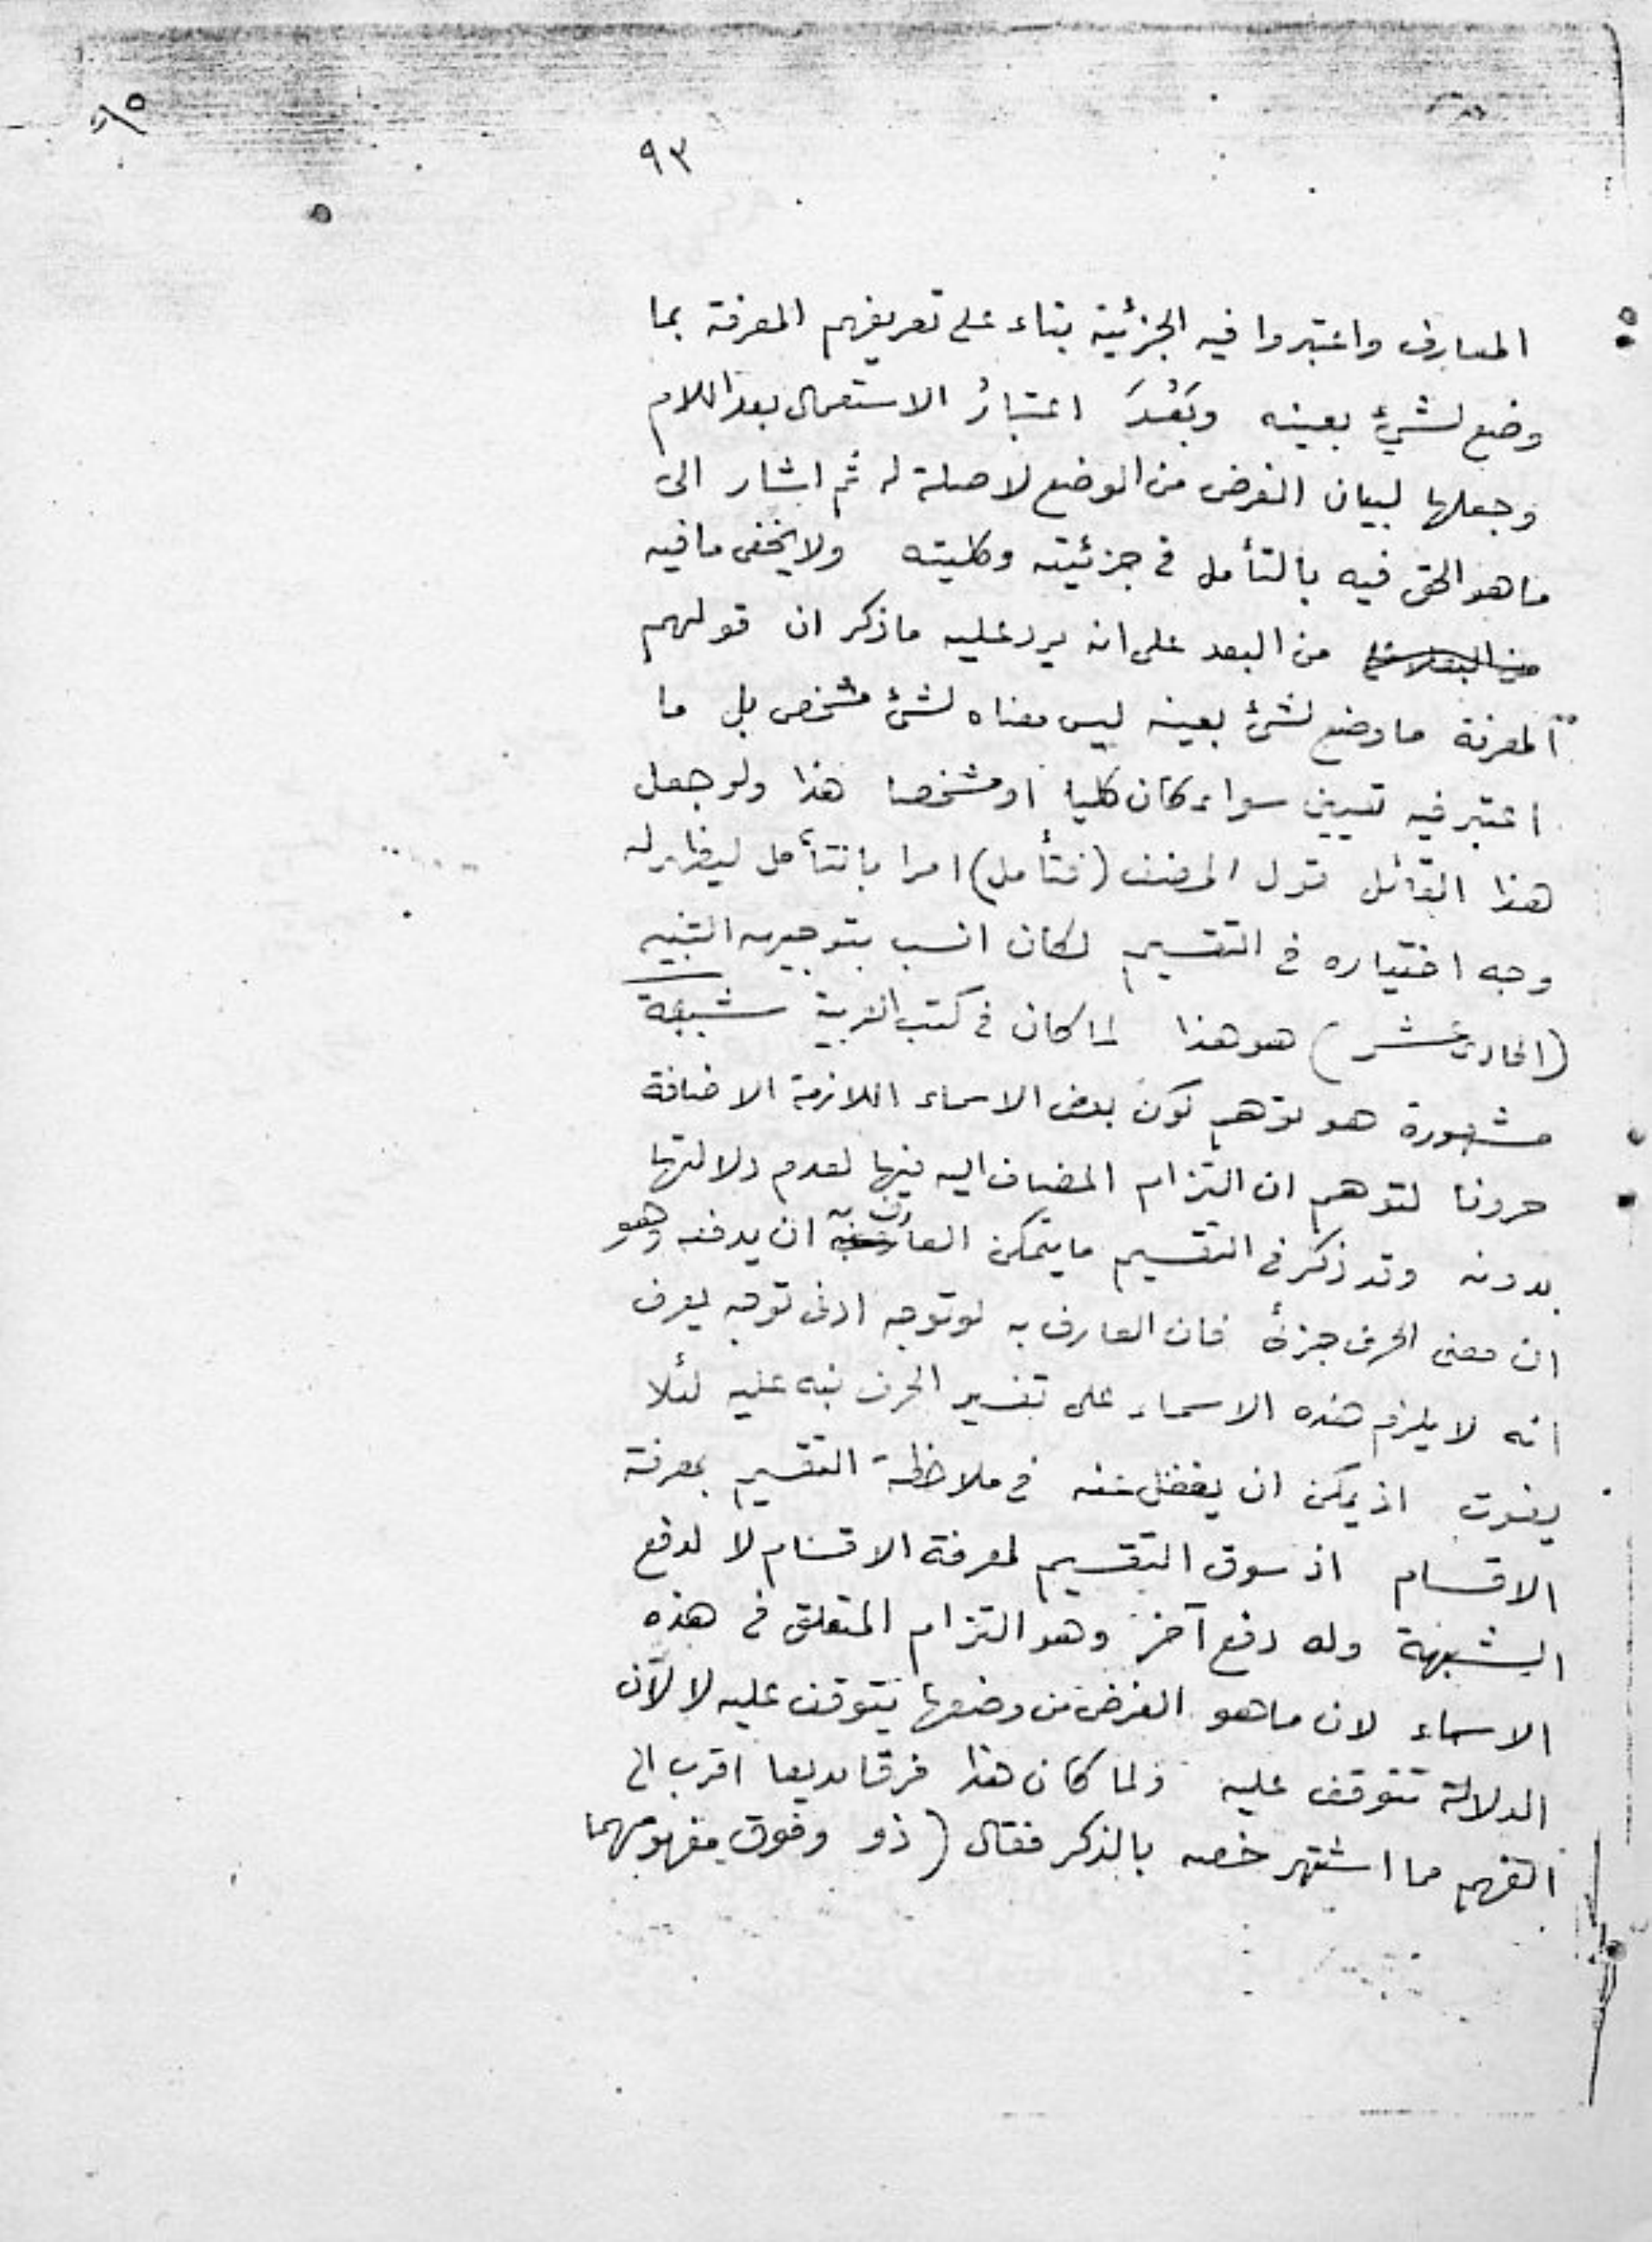 ٩٥
٩٣
المعارف واعتبروا فيه الجزئية بناء على تعريفهم المعرفة بما
وضع لشيئ بعينه وبَعُدَ اعتبارُ الاستعمال بعد اللام
وجعلها لبيان الغرض من الوضع لا صلة له ثم اشار الى
ما هو الحق فيه بالتأمل في جزئيته وكليته ولا يخفى ما فيه
من البعد على انه يرد عليه ما ذكر ان قولهم
المعرفة ما وضع لشئ بعينه ليس معناه لشئ مشخص بل ما
اعتبر فيه تعيين سواء كان كليا او مشخصا هذا ولو جعل
هذا القائل قول المصنف (فتأمل) امرا بالتأمل ليظهر له
وجه اختياره في التقسيم لكان انسب بتوجيهه التنبيه
(الحادى عشر) هو هذا لما كان في كتب العربية شبهة
مشهورة هو توهم كون بعض الاسماء اللازمة الاضافة
حروفا لتوهم ان التزام المضاف اليه فيها لعدم دلالتها
بدونه وقد ذكر في التقسيم ما يتمكن العارف به ان يدفعه وهو
ان معنى الحرف جزئ فان العارف به لو توجه ادنى توجه يعرف
انه لا يلزم هذه الاسماء على تفسير الحرف نبه عليه لئلا
يفوت اذ يمكن ان يغفل عنه في ملاحظة التقسيم بمعرفة
الاقسام اذ سوق التقسيم لمعرفة الاقسام لا لدفع
الشبهة وله دفع آخر وهو التزام المتعلق في هذه
الاسماء لان ما هو الغرض من وضعها يتوقف عليه لا لأن
الدلالة تتوقف عليه ولما كان هذا فرقا بديعا اقرب الى
الفهم مما اشتهر خصه بالذكر فقال (ذو وفوق مفهومهما